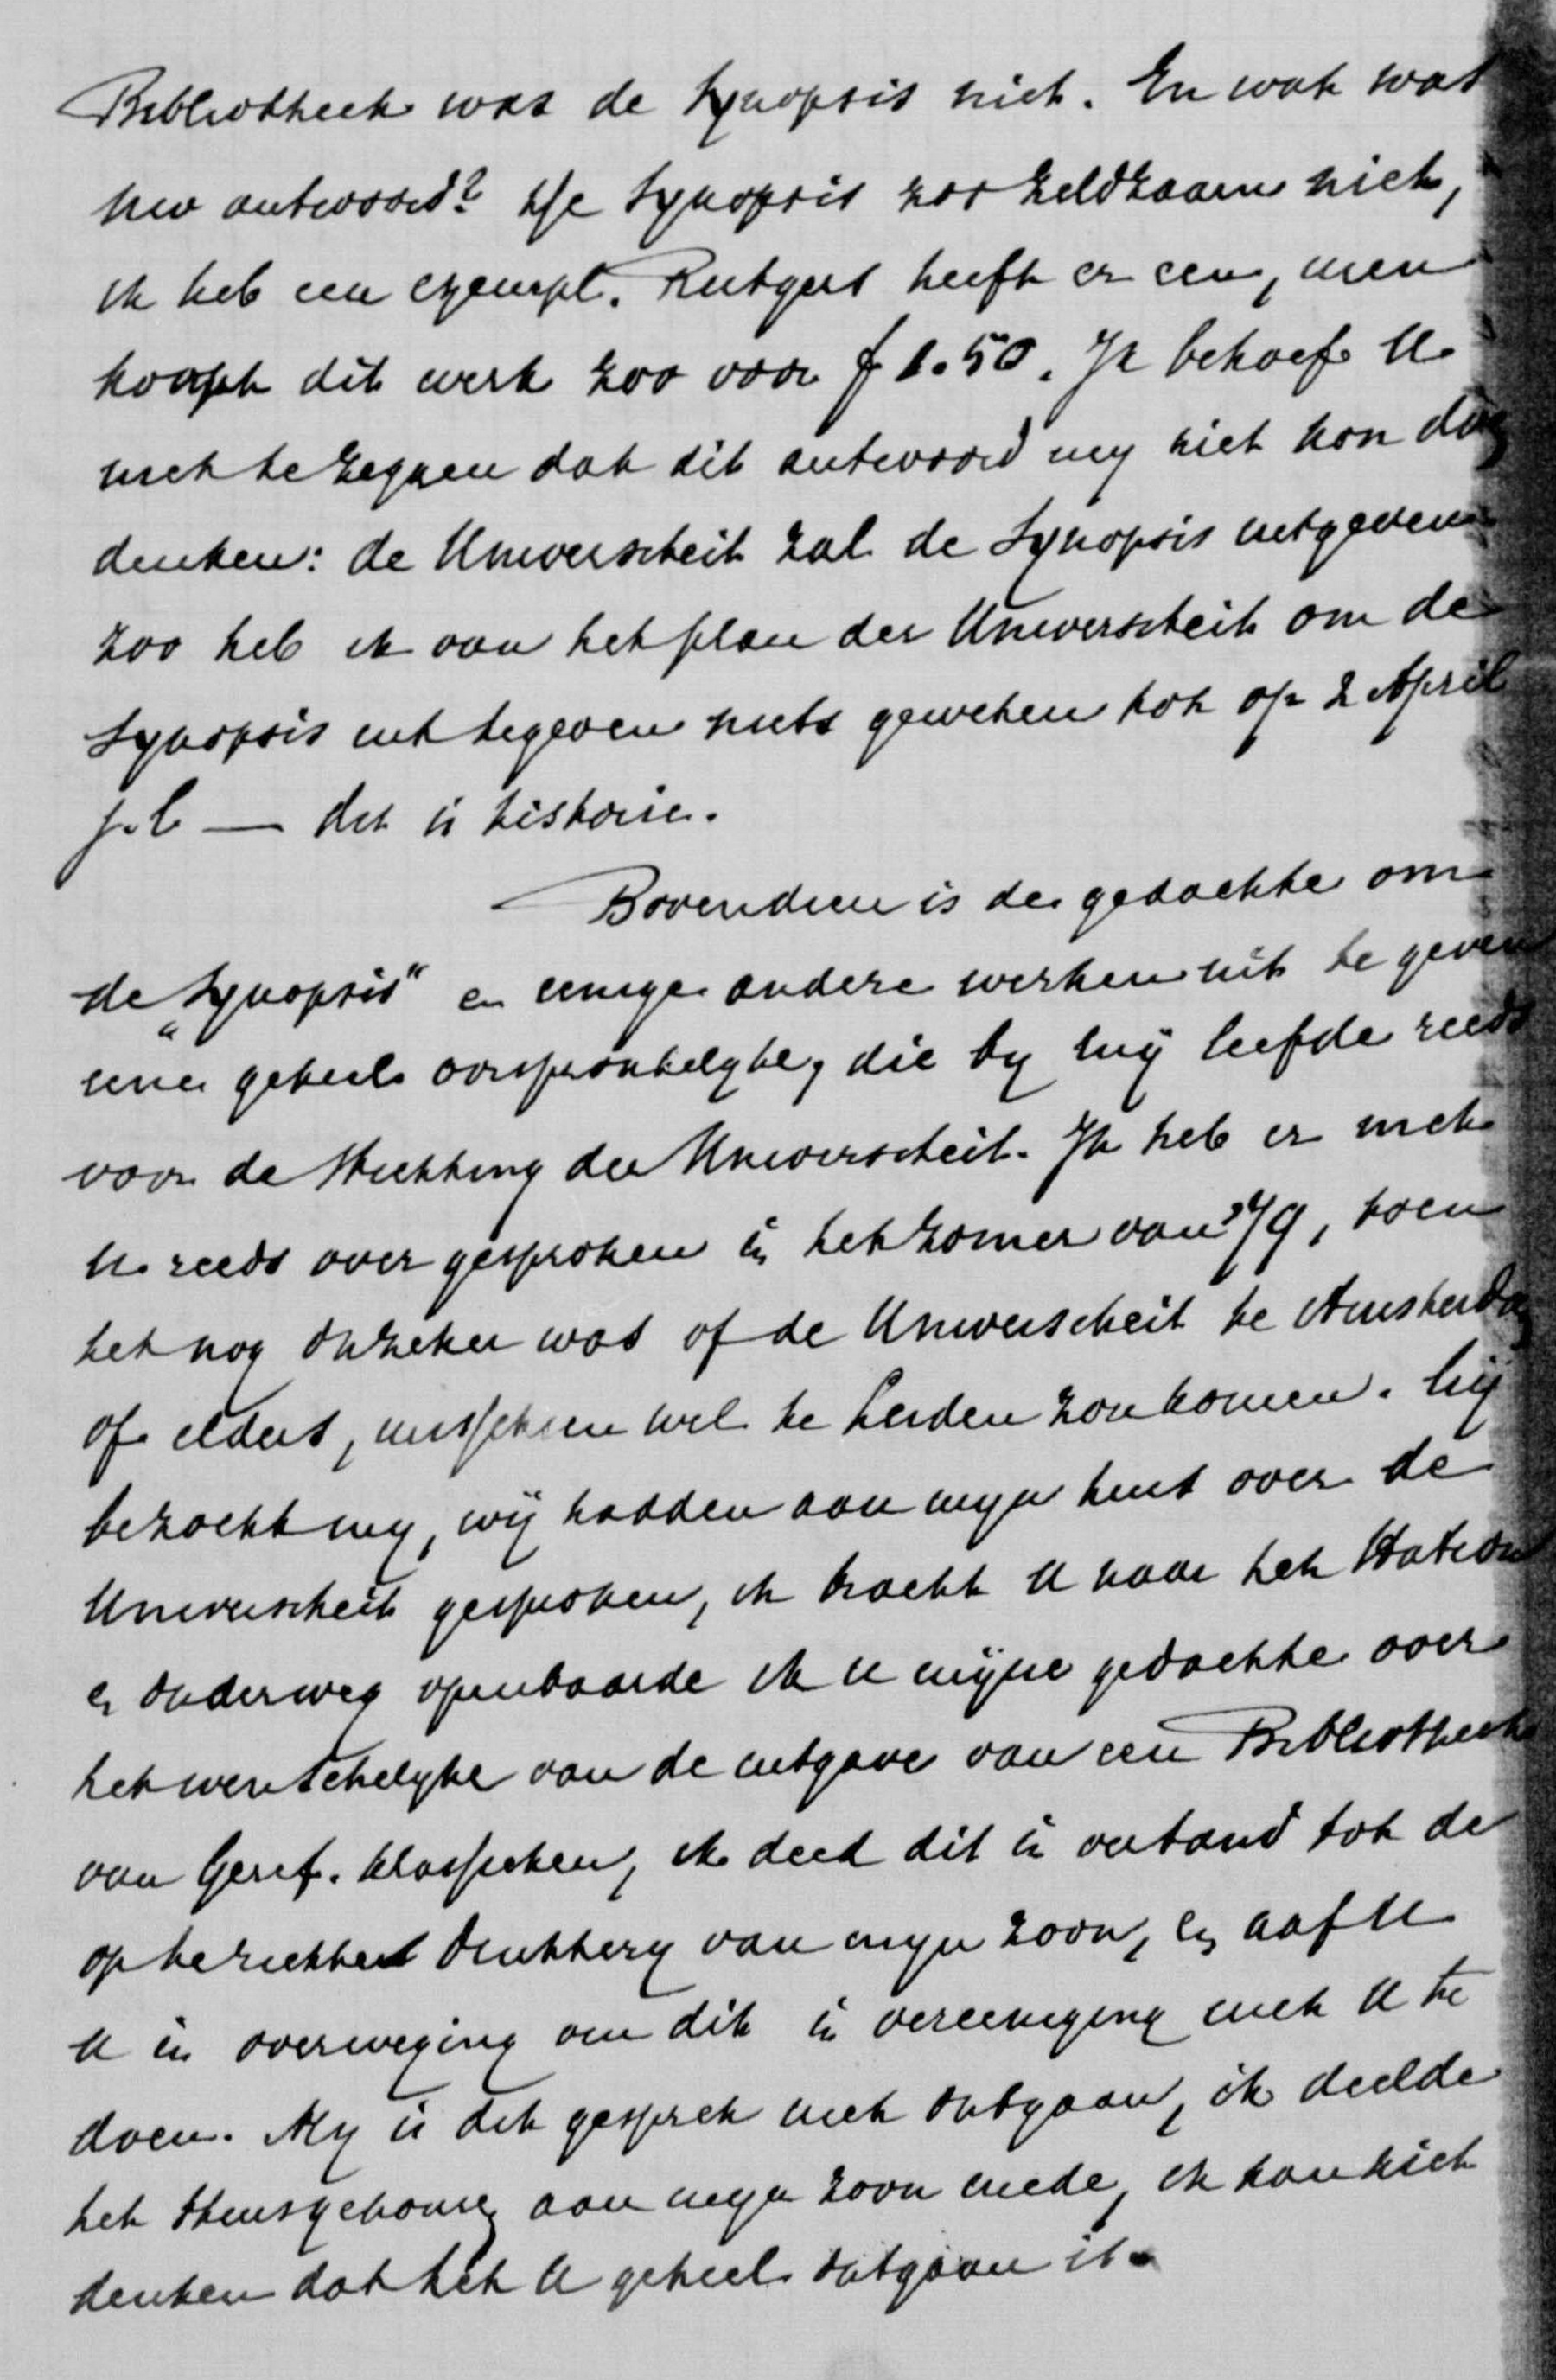 Bibliotheek was de Synopsis niet. En wat was
uw antwoord? De Synopsis zoo zeldzaam niet,
ik heb een exempl. Rutgers heeft er een, men
koopt dit werk zoo voor f 1.50. Ik behoef U
niet te zeggen dat dit antwoord mij niet kon doen
denken: de Universiteit zal de Synopsis uitgeven
zoo heb ik van het plan der Universiteit om de
Synopsis uit te geven niets geweten tot op 2 April
j.l — dit is historie.
Bovendien is de gedachte om
de „Synopsis" en eenige andere werken uit te geven
eene geheel oorspronkelijke, die bij mij leefde reeds
voor de stichting der Universiteit. Ik heb er met
U reeds over gesproken in het zomer van 79, toen
het nog onzeker was of de Universiteit te Amsterdam
of elders, misschien wel te Leiden zou komen. Gij
bezocht mij, wij hadden aan mijn huis over de
Universiteit gesproken, ik bracht U naar het Station
en onderweg openbaarde ik U mijne gedachte over
het wenschelijke van de uitgave van een Bibliotheek
van Geref. klassieken, ik deed dit in verband tot de
op te richten drukkerij van mijn zoon, en gaf U
U in overweging om dit in vereeniging met U te
doen. Mij is dit gesprek niet ontgaan, ik deelde
het thuisgekomen aan mijn zoon mede, ik kan niet
denken dat het U geheel ontgaan is.